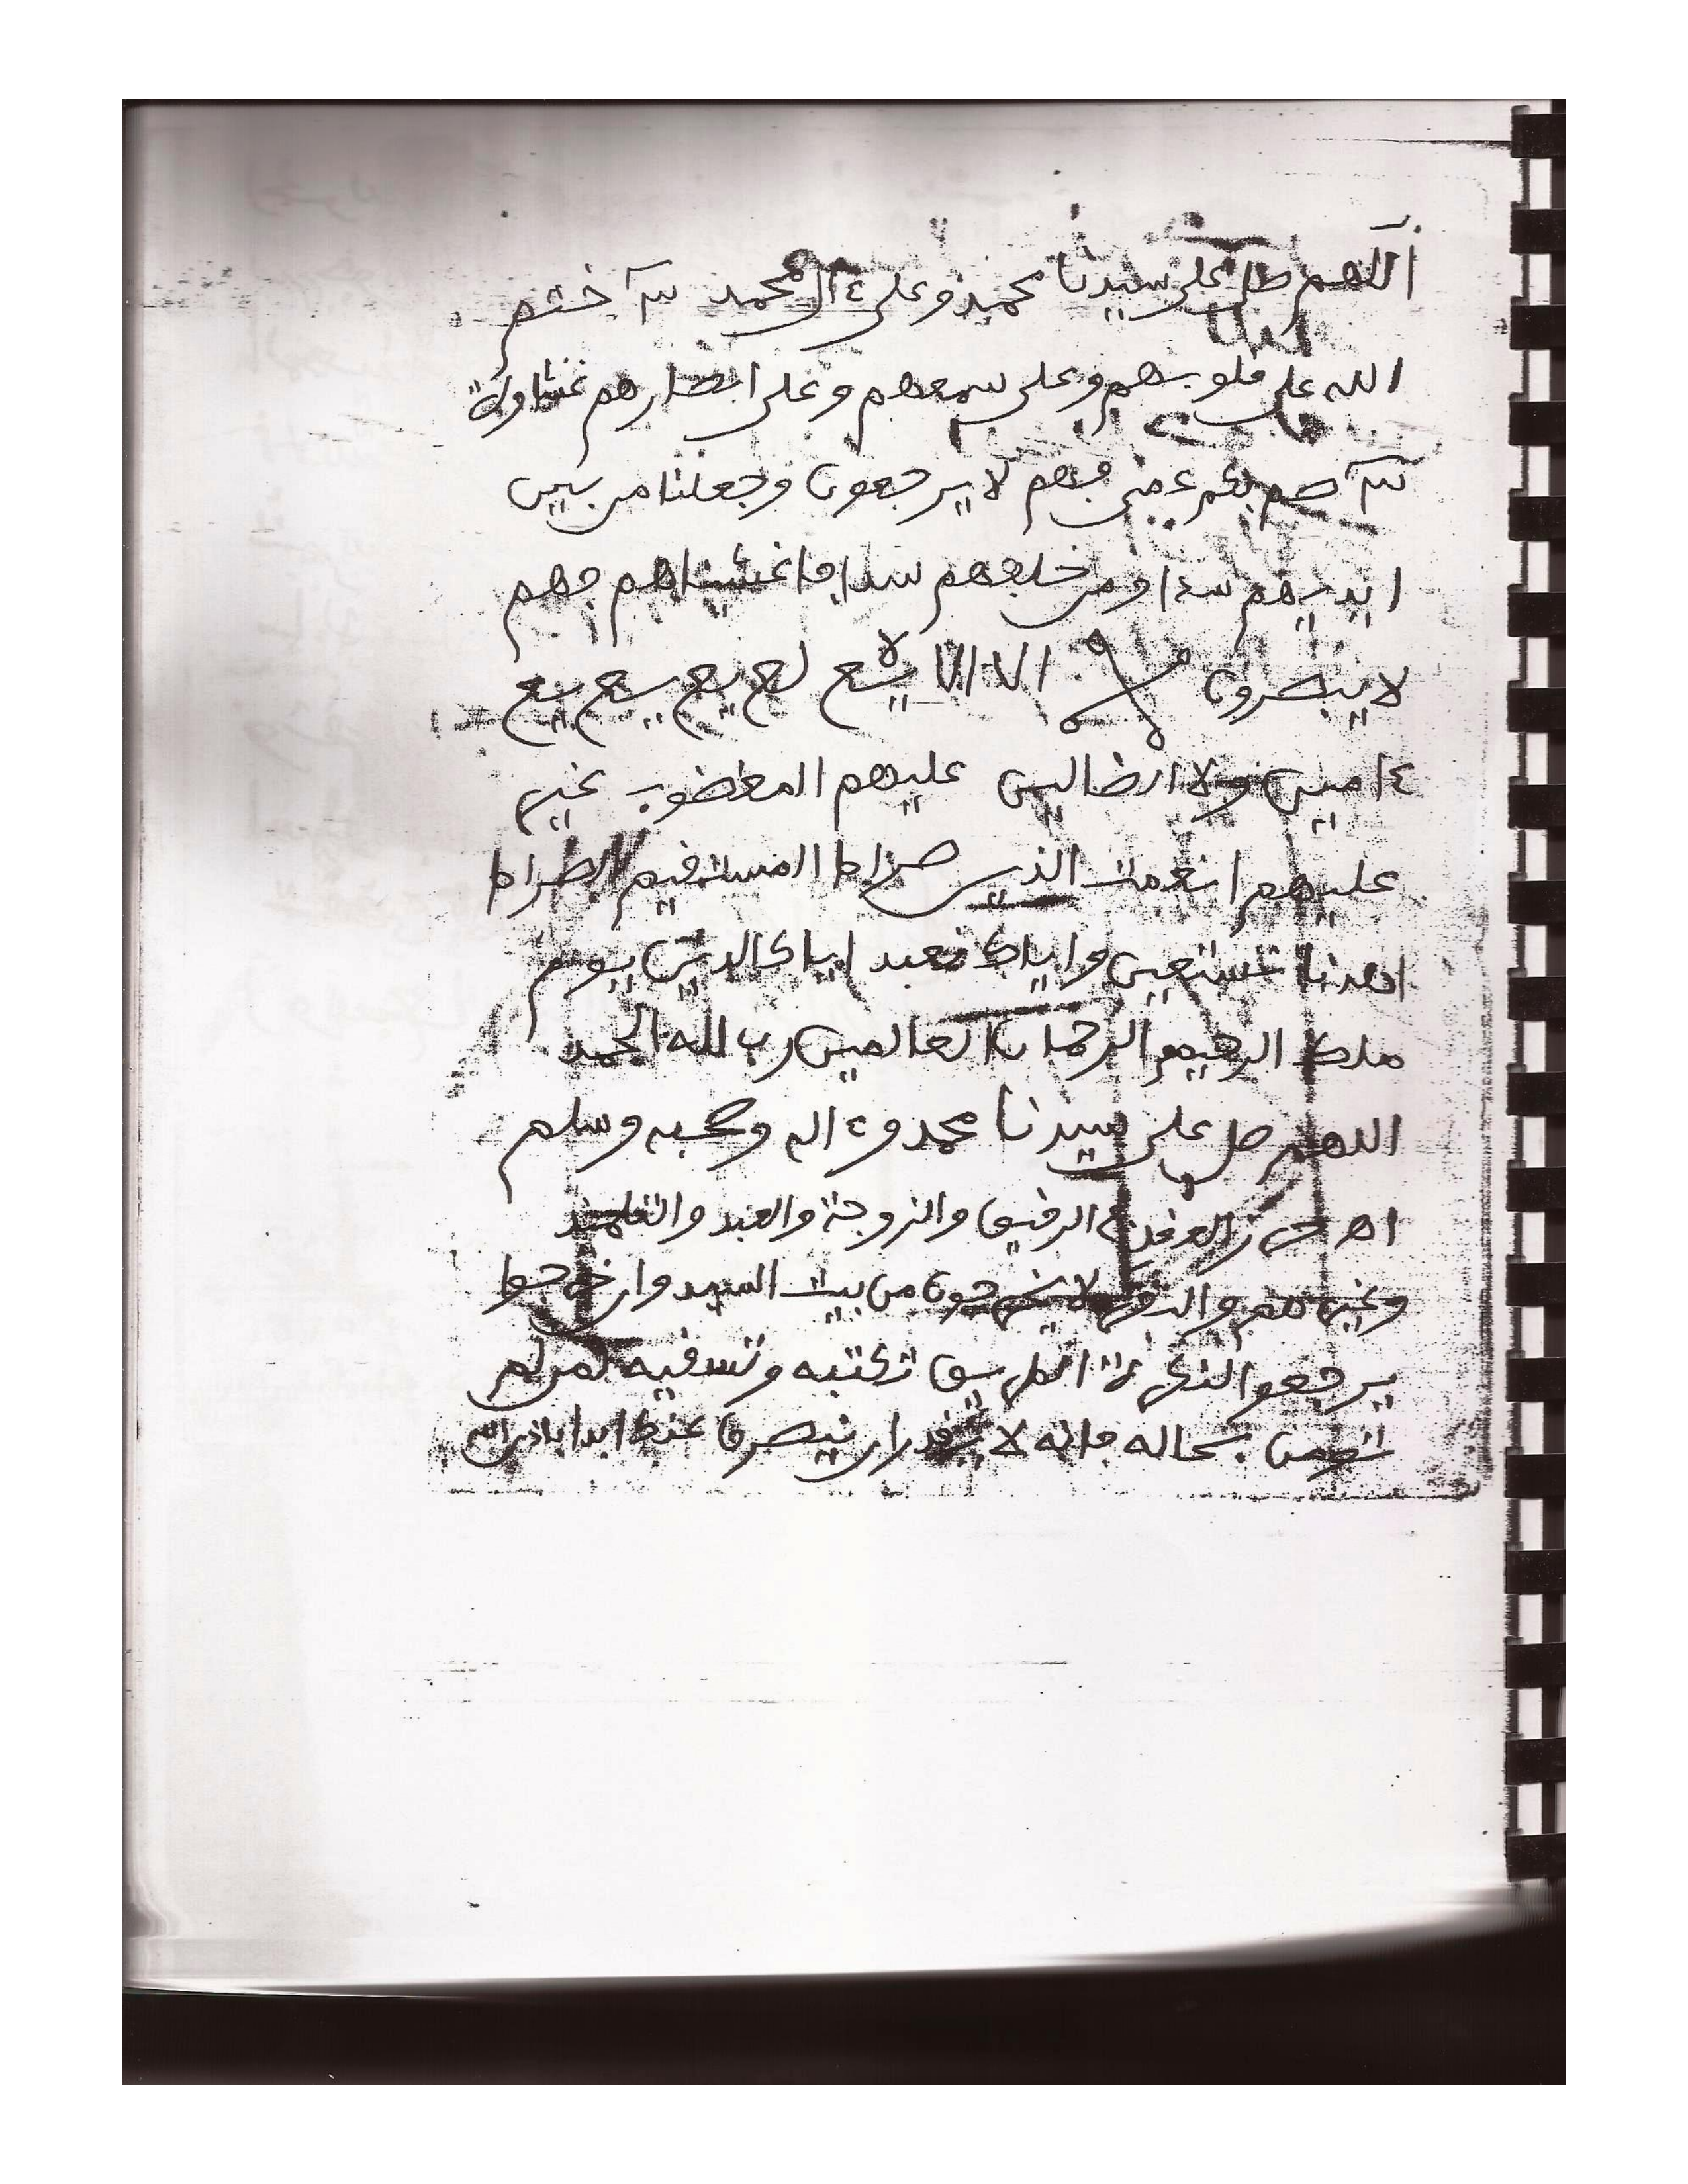 اللهم صل على سيدنا محمد وعلى ءال محمد ختم
الله على قلوبهم وعلى سمعهم وعلى ابصارهم غشاوة
صم بكم عمي فهم لا يرجعون وجعلنا من بين
ايديهم سدا ومن خلفهم سدا فاغشيناهم فهم
لا يبصرون
ءامين ولا الضالين عليهم المغضوب غير
عليهم انعمت الذين صراط المستقيم الصراط
اهدنا نستعين واياك نعبد اياك الدين يوم
ملك الرحيم الرحمان العالمين رب لله الحمد
اللهم صل على سيدنا محمد وءاله وصحبه وسلم
الرفيق والزوجة والعبد والتلميذ
لا يخرجون من بيت السيد وان خرجوا
يرجعوا تكتبه وتسقيه لمن لم
بحاله فانه لا يقدر ان ينصرف عنك ابدا باذن الله